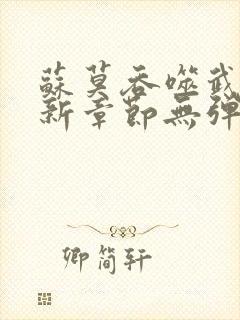 蘇莫吞噬武
新章節無彈
卿簡轩